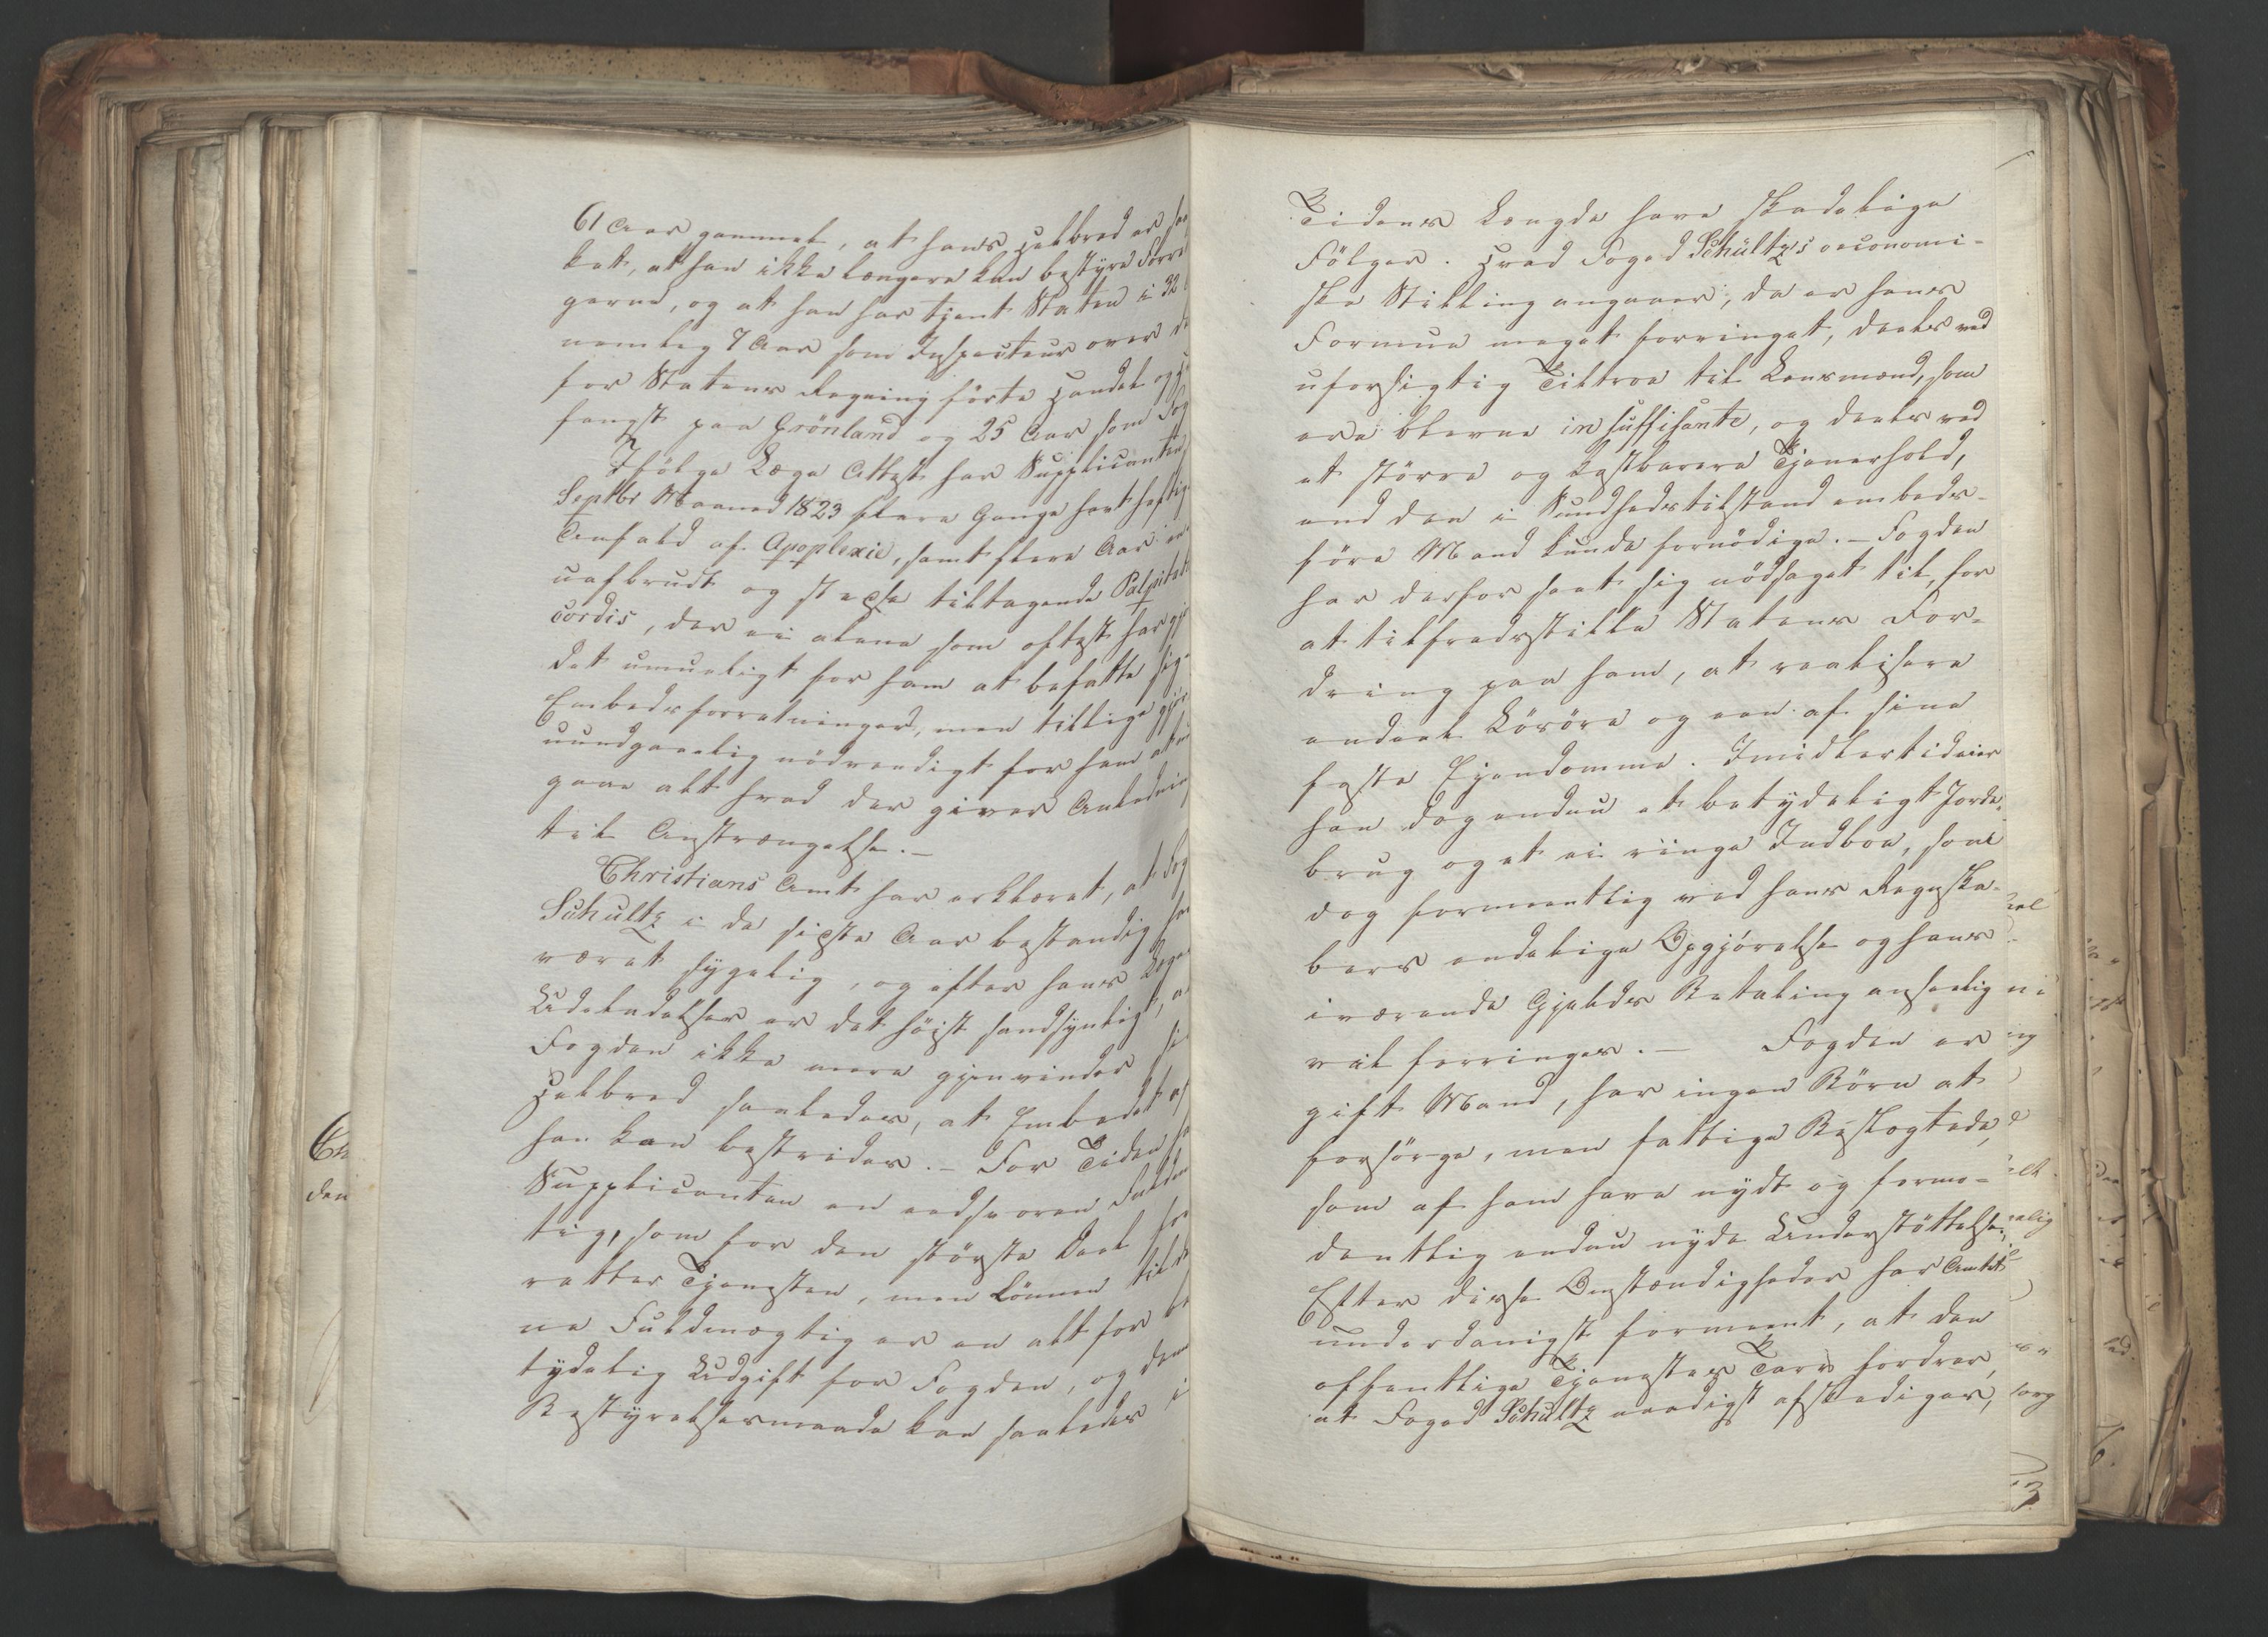 61 Aar gammel, at hans Helbred er saa
ket, at han ikke længere kan bestyre Forre
gerne, og at han har tjent Staten i 32
nemlig 7 Aar som Inspecteur over de
for Statens Regning førte Handel og
fangst paa Grönland og 25 Aar som Fog
Ifölge Læge Attest har Supplicanten
Septbr Maaned 1823 flere Gange havt heftige
Anfald af Apoplexie, samt flere Aar
uafbrudt og stedse tiltagende Palpitat
cordis, der ei alene som oftest har gjo
det umueligt for ham at befatte sig
Embedsforretninger, men tillige gjør
uundgaaelig nödvendigt for ham at
gaae alt hvad der giver Anledning
til Anstrængelse. –
Christians Amt har erklæret, at Fog
Schultz i de sidste Aar bestandig ha
været sygelig, og efter hans Læges
Udeladelser er det höist sandsynligt, a
Fogden ikke mere gjenvinder si
Helbred saaledes, at Embedet af
han kan bestrides. – For Tiden ha
Supplicanten en eedsvoren Fuldm
tig, som for den störste Deel for
retter Tjenesten, men Lönnen til de
ne Fuldmægtig er en alt for be
tydelig Udgift for Fogden, og denne
Bestyrelsesmaade kan saaledes i
Tidens Længde have skadelige
Fölger. Hvad Foged Schültz's oeconomi-
ske Stilling angaaer, da er hans
Formue meget forringet, deels ved
uforsigtig Tiltroe til Lensmænd, som
ere blevne insuffisante, og deels ved
et större og kostbarere Tjenerhold,
end den i Sundhedstilstand embeds-
före Mand kunde fornödige. – Fogden
har derfor seet sig nödsaget til, for
at tilfredsstille Statens For-
dring paa ham, at realisere
endeel Lösöre og een af sine
faste Ejendomme. Imidlertid eier
han dog endnu et betydeligt Jorde-
brug og et ei ringe Indboe, som
dog formeentlig ved hans Regnska-
bers endelige Opgjörelse og hans
iværende Gjelds Betaling anseelig
vil forringes. – Fogden er
gift Mand, har ingen Börn at
forsörge, men fattige Beslægtede,
som af ham have nydt og formo-
dentlig endnu nyde Understöttelse.
Efter disse Omstændigheder har Amtet
underdanigst formeent, at den
offentlige Tjenestes Tarv fordrer,
at Foged Schultz naadigst afskediges,